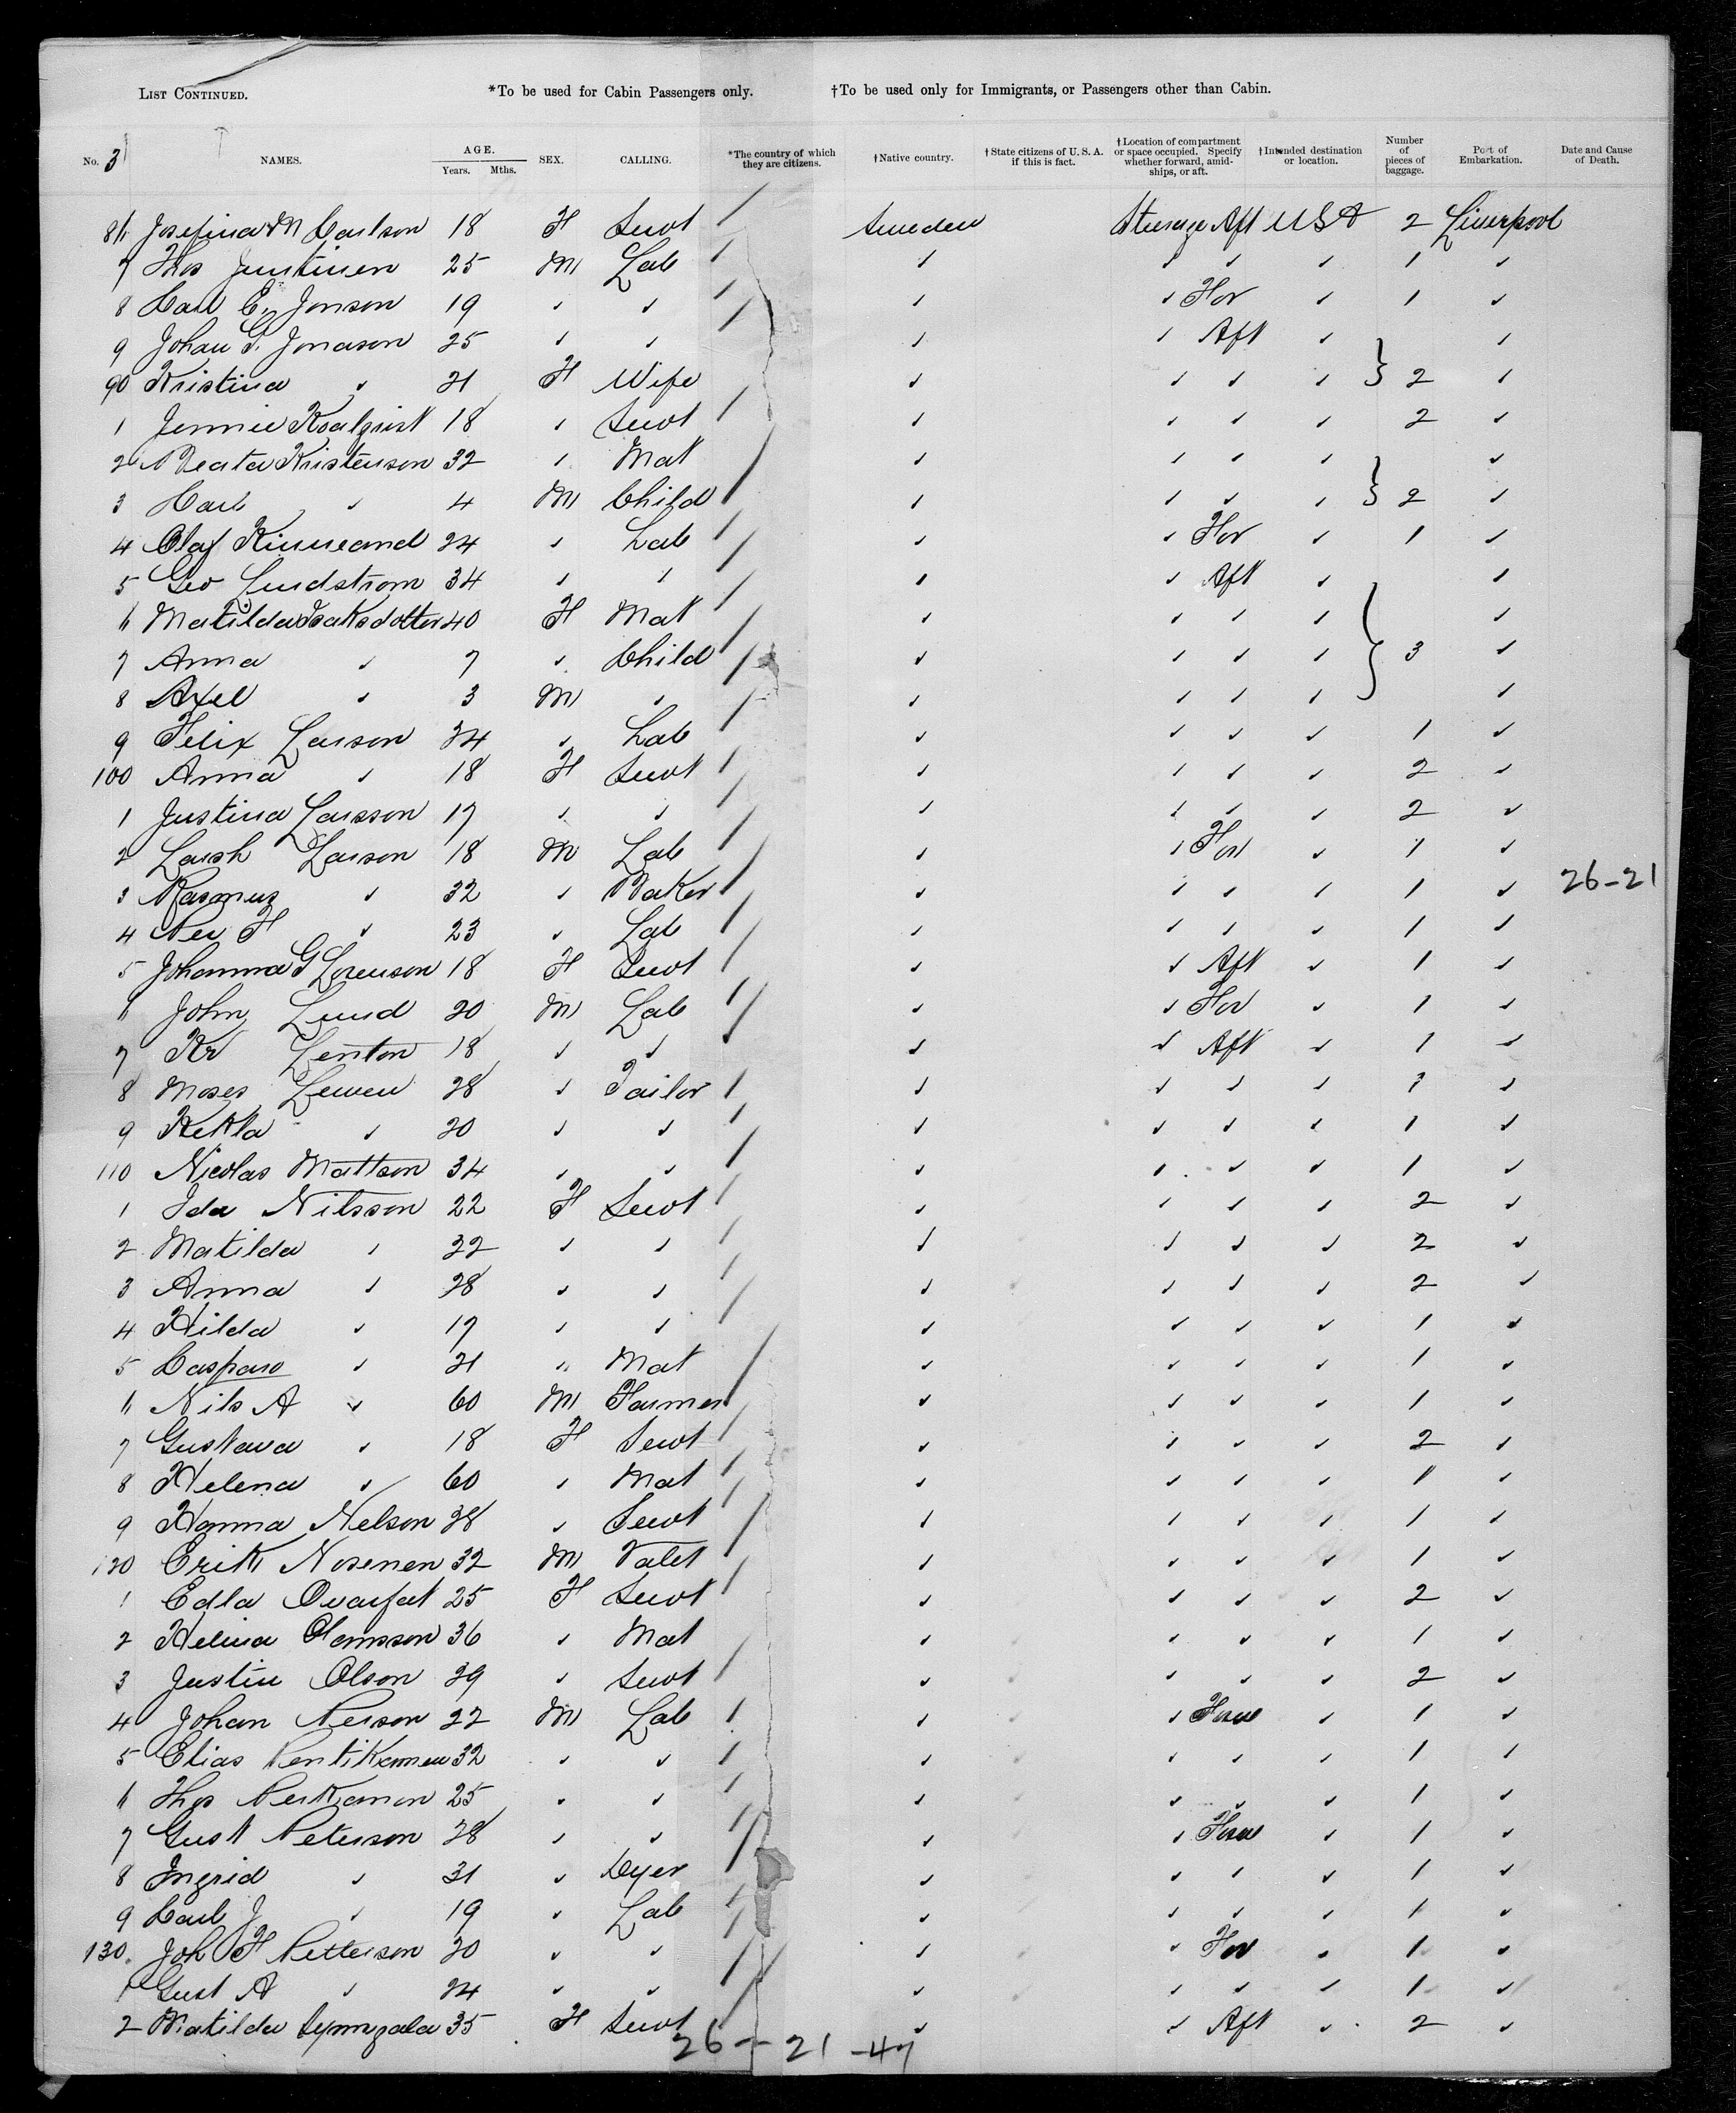 LIST CONTINUED. *To be used for Cabin Passengers only. †To be used only for Immigrants, or Passengers other than Cabin.
No. 3 NAMES. AGE. Years. Mths. SEX. CALLING. *The country of which they are citizens. †Native country. †State citizens of U. S. A. if this is fact. †Location of compartment or space occupied. Specify whether forward, amidships, or aft. †Intended destination or location. Number of pieces of baggage. Port of Embarkation. Date and Cause of Death.
86 Josefina M Carlson 18 F Servt Sweden Steerage Aft USA 2 Liverpool
7 Thos 25 M Lab ✓ ✓ ✓ ✓ 1 ✓
8 Carl E. Jonson 19 ✓ ✓ ✓ ✓ For ✓ 1 ✓
9 Johan G. Jonason 25 ✓ ✓ ✓ ✓ Aft ✓ ✓
90 Kristina ✓ 21 F Wife ✓ ✓ ✓ ✓ } 2 ✓
1 Jennie 18 ✓ Servt ✓ ✓ ✓ ✓ 2 ✓
2 Beata Kristenson 32 ✓ Mat ✓ ✓ ✓ ✓ ✓
3 Carl ✓ 4 M Child ✓ ✓ ✓ ✓ } 2 ✓
4 Olaf 24 ✓ Lab ✓ ✓ For ✓ 1 ✓
5 Geo Lindstrom 34 ✓ ✓ ✓ ✓ Aft ✓ ✓
6 Matilda Isaksdotter 40 F Mat ✓ ✓ ✓ ✓ ✓
7 Anna ✓ 7 ✓ Child ✓ ✓ ✓ ✓ } 3 ✓
8 Axel ✓ 3 M ✓ ✓ ✓ ✓ ✓ ✓
9 Felix Larson 24 ✓ Lab ✓ ✓ ✓ ✓ 1 ✓
100 Anna ✓ 18 F Servt ✓ ✓ ✓ ✓ 2 ✓
1 Justina Larsson 17 ✓ ✓ ✓ ✓ ✓ ✓ 2 ✓
2 Larson 18 M Lab ✓ ✓ For ✓ 1 ✓
3 Rasmus ✓ 32 ✓ Baker ✓ ✓ ✓ ✓ 1 ✓ 26-21
4 Per F ✓ 23 ✓ Lab ✓ ✓ ✓ ✓ 1 ✓
5 Johanna G Lorenson 18 F Servt ✓ ✓ Aft ✓ 1 ✓
6 John Lund 20 M Lab ✓ ✓ For ✓ 1 ✓
7 Kr Lenton 18 ✓ ✓ ✓ ✓ Aft ✓ 1 ✓
8 Moses 28 ✓ Tailor ✓ ✓ ✓ ✓ 1 ✓
9 ✓ 20 ✓ ✓ ✓ ✓ ✓ ✓ 1 ✓
110 Nicolas Mattson 34 ✓ ✓ ✓ ✓ ✓ ✓ 1 ✓
1 Ida Nilsson 22 F Servt ✓ ✓ ✓ ✓ 2 ✓
2 Matilda ✓ 22 ✓ ✓ ✓ ✓ ✓ ✓ 2 ✓
3 Anna ✓ 28 ✓ ✓ ✓ ✓ ✓ ✓ 2 ✓
4 Hilda ✓ 17 ✓ ✓ ✓ ✓ ✓ ✓ 1 ✓
5 ✓ 21 ✓ Mat ✓ ✓ ✓ ✓ 1 ✓
6 Nils A ✓ 60 M Farmer ✓ ✓ ✓ ✓ 1 ✓
7 Gustava ✓ 18 F Servt ✓ ✓ ✓ ✓ 2 ✓
8 Helena ✓ 60 ✓ Mat ✓ ✓ ✓ ✓ 1 ✓
9 Hanna Nelson 28 ✓ Servt ✓ ✓ ✓ ✓ 1 ✓
120 Erik Nosenen 32 M Valet ✓ ✓ ✓ ✓ 1 ✓
1 Edla 25 F Servt ✓ ✓ ✓ ✓ 2 ✓
2 36 ✓ Mat ✓ ✓ ✓ ✓ 1 ✓
3 Justin Olson 29 ✓ Servt ✓ ✓ ✓ ✓ 2 ✓
4 Johan Person 22 M Lab ✓ ✓ ✓ 1 ✓
5 Elias 32 ✓ ✓ ✓ ✓ ✓ ✓ 1 ✓
6 Thos 25 ✓ ✓ ✓ ✓ ✓ ✓ 1 ✓
7 Gust Peterson 28 ✓ ✓ ✓ ✓ ✓ 1 ✓
8 Ingrid ✓ 31 ✓ Dyer ✓ ✓ ✓ ✓ 1 ✓
9 Carl J ✓ 19 ✓ Lab ✓ ✓ ✓ ✓ 1 ✓
130. Joh F Petterson 20 ✓ ✓ ✓ ✓ For ✓ 1 ✓
1 Gust A ✓ 24 ✓ ✓ ✓ ✓ ✓ ✓ 1 ✓
2 Matilda 35 F Servt ✓ ✓ Aft ✓ 2 ✓
26-21-47